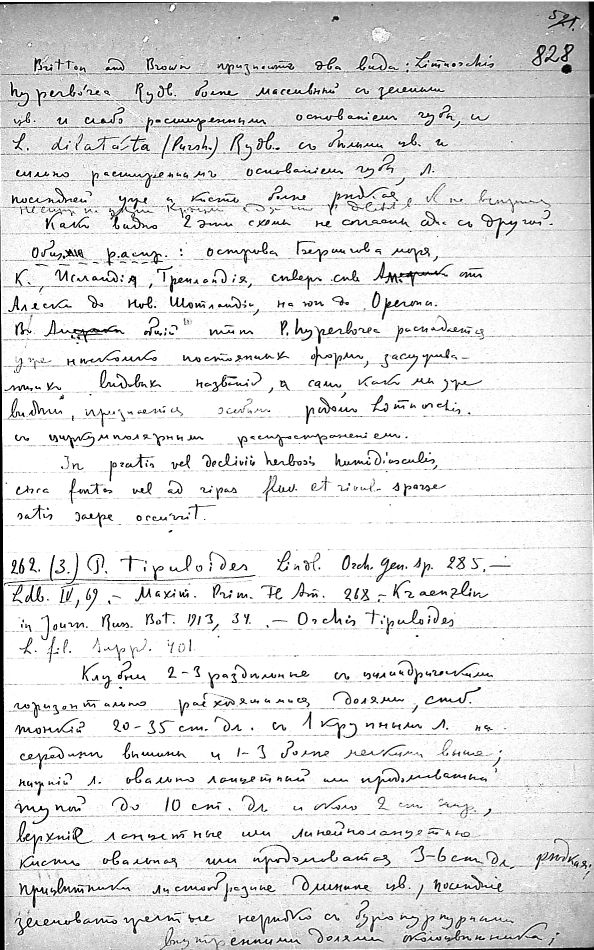 521.
828
Britton and Brown признаютъ два вида: Limnorchis
hyperborea Rydb. болѣе массивный съ зелеными
цв. и слабо расширеннымъ основаніемъ губы, и
L. dilatata (Pursh.) Rydb. съ бѣлыми цв. и
сильно расширеннымъ основаніемъ губы, л.
послѣдней уже и кисть болѣе рѣдкая
Какъ видно 2 эти схемы не согласны одна съ другой.
Общ. распр.: острова Берингова моря,
К., Исландія, Гренландія, сѣверн. Ам. отъ
Аляски до Нов. Шотландіи, на югъ до Орегона.
Въ общій типъ P. hyperborea распадается
уже нѣсколько постоянныхъ формъ, заслужива-
ющихъ видовыхъ названій, а самъ, какъ мы уже
видѣли, признается особымъ родомъ Limnorchis.
съ циркумполярнымъ распространеніемъ.
In pratis vel declivis herbosis humidiusculis,
circa fontes vel ad ripas fluv. et rivul. sparse
satis saepe occurrit.
262. (3.) P. tipuloides Lindl. Orch. gen. sp. 285. —
Ldb. IV, 69. — Maxim. Prim. Fl. Am. 268. — Kraenzlin
in Journ. Russ. Bot. 1913, 34. — Orchis tipuloides
L. fil. Suppl. 401.
Клубни 2-3 раздѣльные съ цилиндрическими
горизонтально расходящимися долями, стб.
тонкій 20-35 cm. дл. съ 1 крупнымъ л. на
серединѣ вышины и 1-3 болѣе мелкими выше;
нижній л. овально ланцетный или продолговатый
тупой до 10 cm. дл. и около 2 cm шир.,
верхніе ланцетные или линейноланцетные
кисть овальная или продолговатая 3-6 cm дл. рѣдкая;
прицвѣтники листообразные длиннѣе цв., послѣдніе
зеленоватожелтые нерѣдко съ буропурпурными
внутренними долями околоцвѣтника;